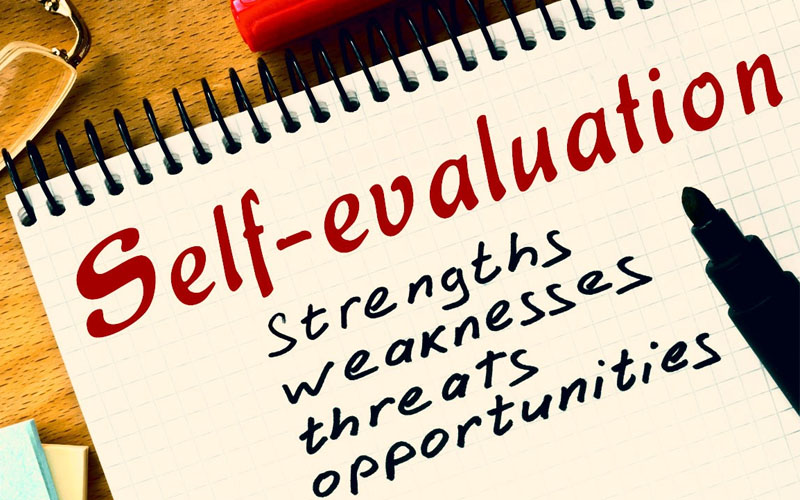 Self-evaluation
Strengths
weaknesses
threats
opportunities